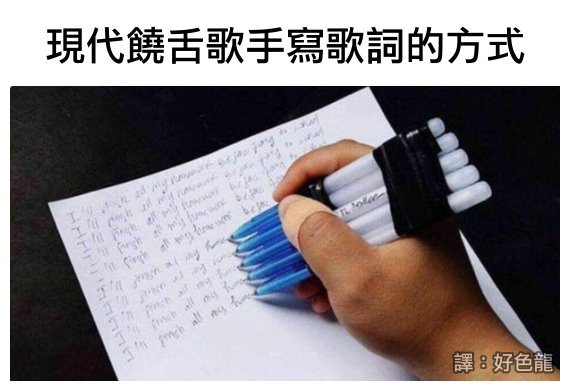 現代饒舌歌手寫歌詞的方式
I'll finish all my homework before going to school
I'll finish all my homework before going to school
I'll finish all my homework before going to school
I'll finish all my homework before going to school
I'll finish all my homework before
I'll finish all my
I'll finish all my
I'll finish all my
I'll finish all my
I'll finish all my
譯：好色龍